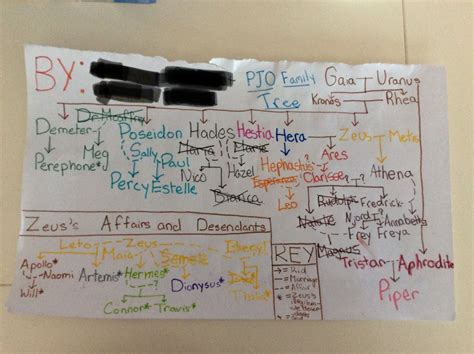 BY: PJO Family Gaia Uranus
Tree Kronos Rhea
Demeter Poseidon Hades Hestia Hera Zeus Metis
Meg Sally Paul Maria Marie Ares Athena
Perephone* Nico Hazel Hephastus Clarisse
Percy Estelle Bianca Esperanza Rudolph Fredrick
Leo Natalie Njord ? Annabeth
Zeus's Affairs and Desendants Frey Freya
Leto Zeus Beryl Magnus
Apollo* Maia Semele KEY Tristan Aphrodite
Naomi Artemis* Hermes* → = Kid Piper
Will* Dionysus* Jason = Marriage
Connor* Travis* Thalia = Affair
* = Zeus's